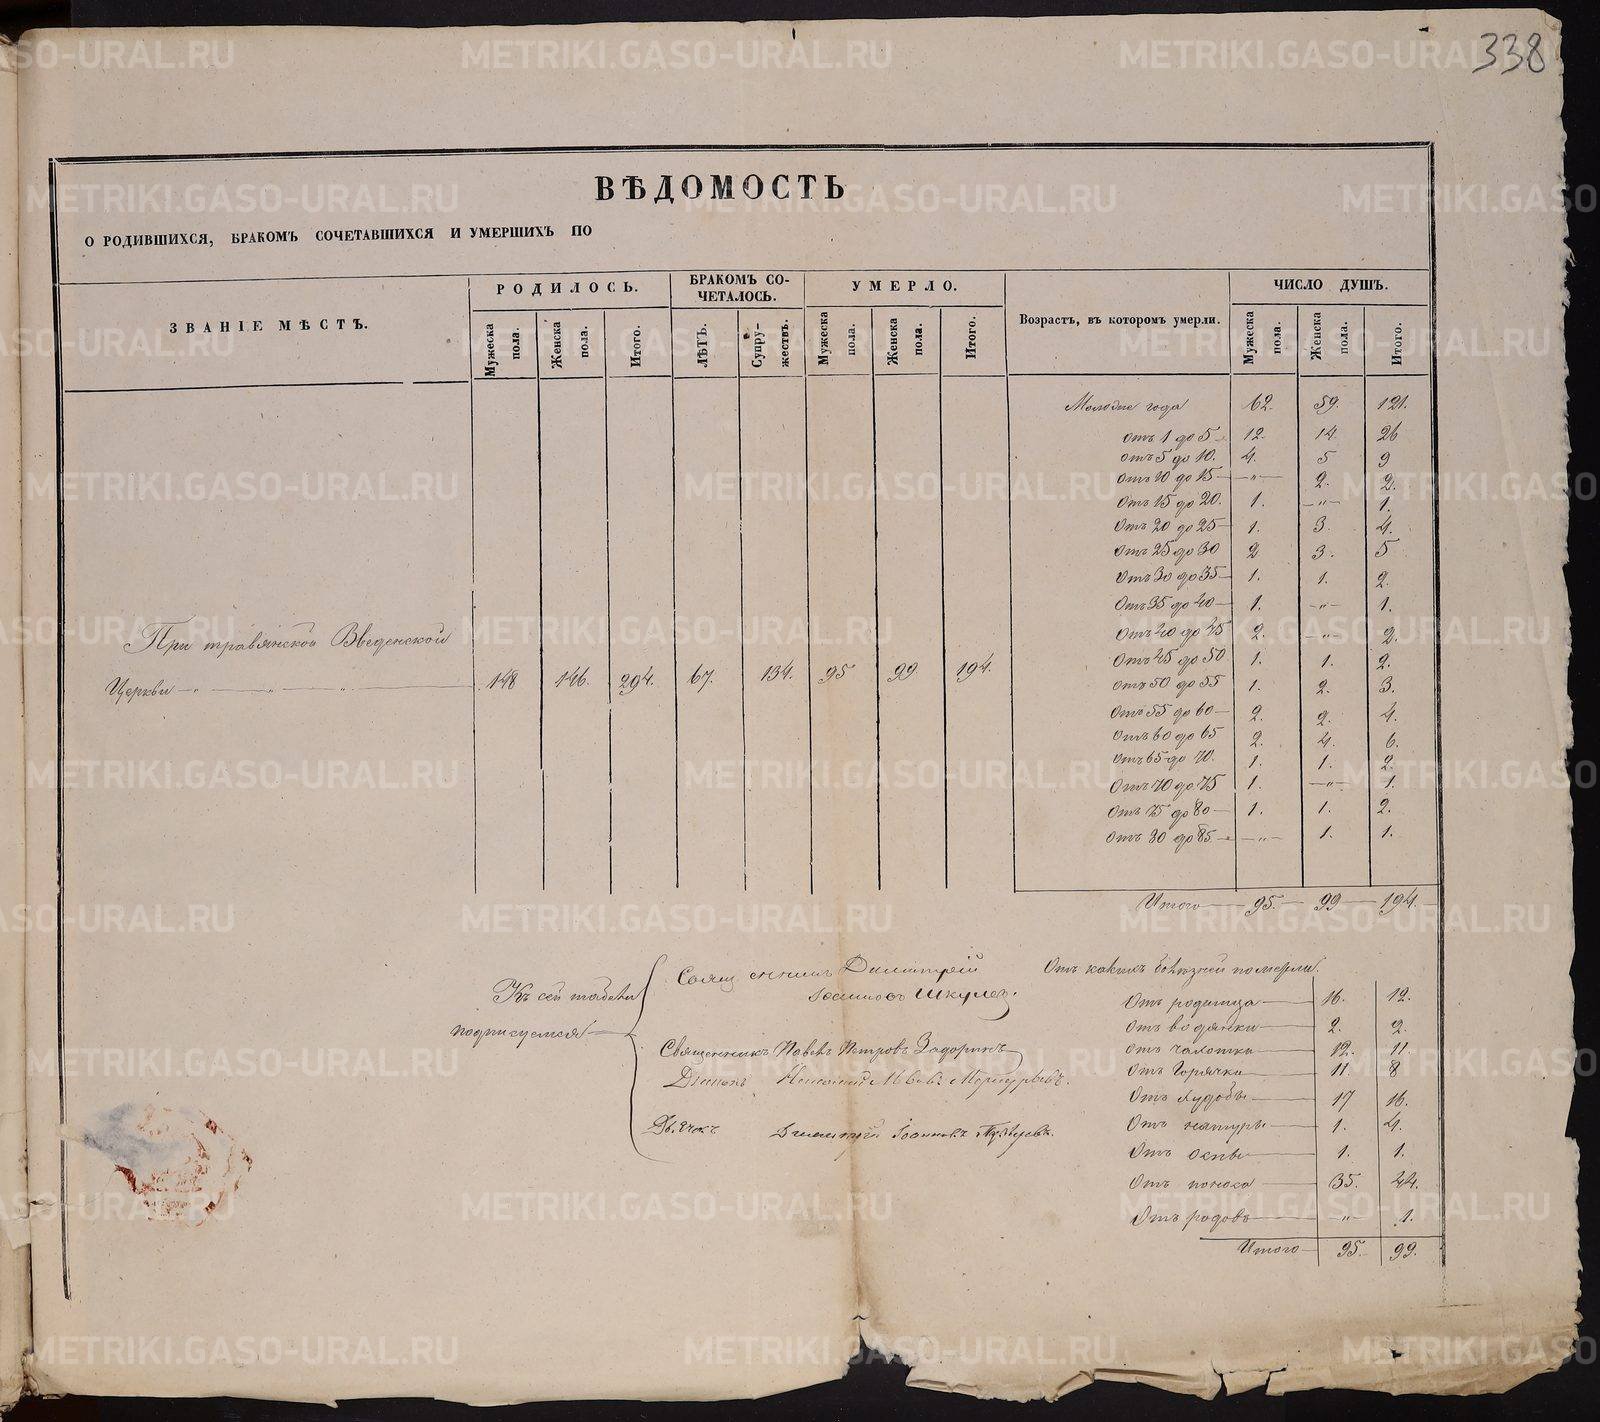 338
ВѢДОМОСТЬ
О РОДИВШИХСЯ, БРАКОМЪ СОЧЕТАВШИХСЯ И УМЕРШИХЪ ПО
ЗВАНІЕ МѢСТЪ.
РОДИЛОСЬ.
Мужеска пола.
Женска пола.
Итого.
БРАКОМЪ СО-
ЧЕТАЛОСЬ.
ЛѢТЪ.
Супру-
жествъ.
УМЕРЛО.
Мужеска пола.
Женска пола.
Итого.
Возрастъ, въ которомъ умерли.
ЧИСЛО ДУШЪ.
Мужеска пола.
Женска пола.
Итого.
При травянской Введенской
Церкви — „ — „ — „ — 148 146. 294. 67. 134. 95 99 194.
года 62. 59. 121.
отъ 1 до 5 12. 14. 26
отъ 5 до 10. 4. 5 9
отъ 10 до 15 — „ — 2. 2.
отъ 15 до 20. 1. — „ — 1.
отъ 20 до 25 — 1. 3. 4.
отъ 25 до 30 2 3. 5
отъ 30 до 35 — 1. 1. 2.
отъ 35 до 40 — 1. — „ — 1.
отъ 40 до 45 2. — „ — 2.
отъ 45 до 50 1. 1. 2.
отъ 50 до 55 1. 2. 3.
отъ 55 до 60 — 2. 2. 4.
отъ 60 до 65 2. 4. 6.
отъ 65 до 70. 1. 1. 2.
отъ 70 до 75 1. — „ — 1.
отъ 75 до 80 — 1. 1. 2.
отъ 80 до 85. — „ — 1. 1.
Итого — 95. — 99 — 194.
Къ сей табели
подписуемся
Священникъ Димитрій
Іоанновъ Шкулев.
Священникъ Павелъ Петровъ Задоринъ
Діаконъ
Дьячокъ Димитрій Іоанновъ
Отъ какихъ болѣзней померли.
Отъ родимца — 16. 12.
Отъ водянки — 2. 2.
Отъ чахотки — 12. 11.
Отъ Горячки — 11. 8
Отъ худобы — 17 16.
Отъ натуры — 1. 4.
Отъ оспы — 1. 1.
Отъ поноса — 35. 44.
Отъ родовъ — „ — 1.
Итого — 95. 99.
METRIKI.GASO-URAL.RU